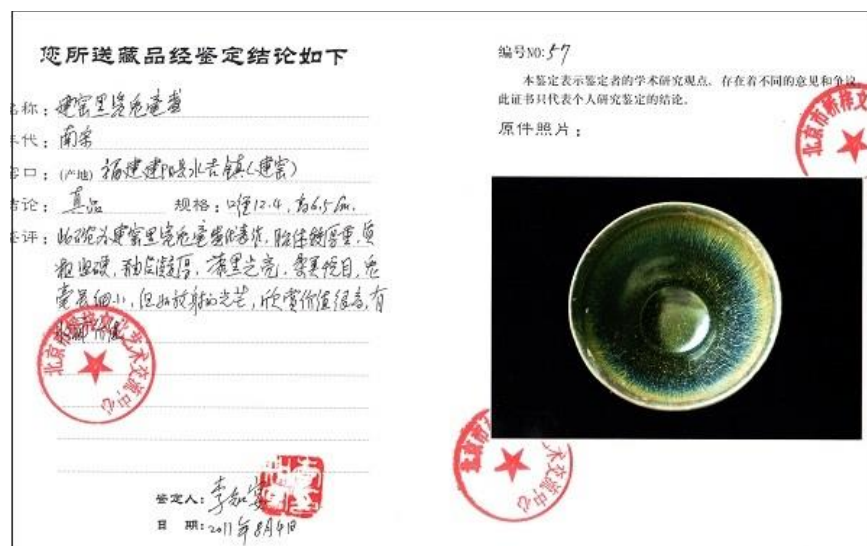 您所送藏品经鉴定结论如下
名称：建窑黑瓷兔毫盏
年代：南宋
窑口：(产地) 福建建阳县水吉镇(建窑)
结论：真品 规格：口径12.4，高6.5cm.
鉴评：此碗为建窑黑瓷兔毫盏代表作，胎体较厚重，质
粗坚硬，釉层凝厚，蓝黑光亮，柔美悦目，兔
毫虽细小，但如放射的光芒，欣赏价值很高，有
收藏价值
北京市桥梓文化艺术交流中心
鉴定人：李知宴
日期：2011年8月9日
编号NO:57
本鉴定表示鉴定者的学术研究观点，存在着不同的意见和争议，
此证书只代表个人研究鉴定的结论。
原件照片：
北京市桥梓文
艺术交流中心